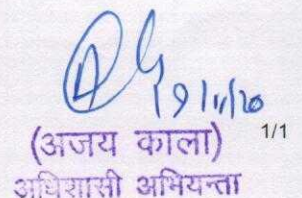 19/11/20
(अजय काला)
1/1
अधिशासी अभियन्ता